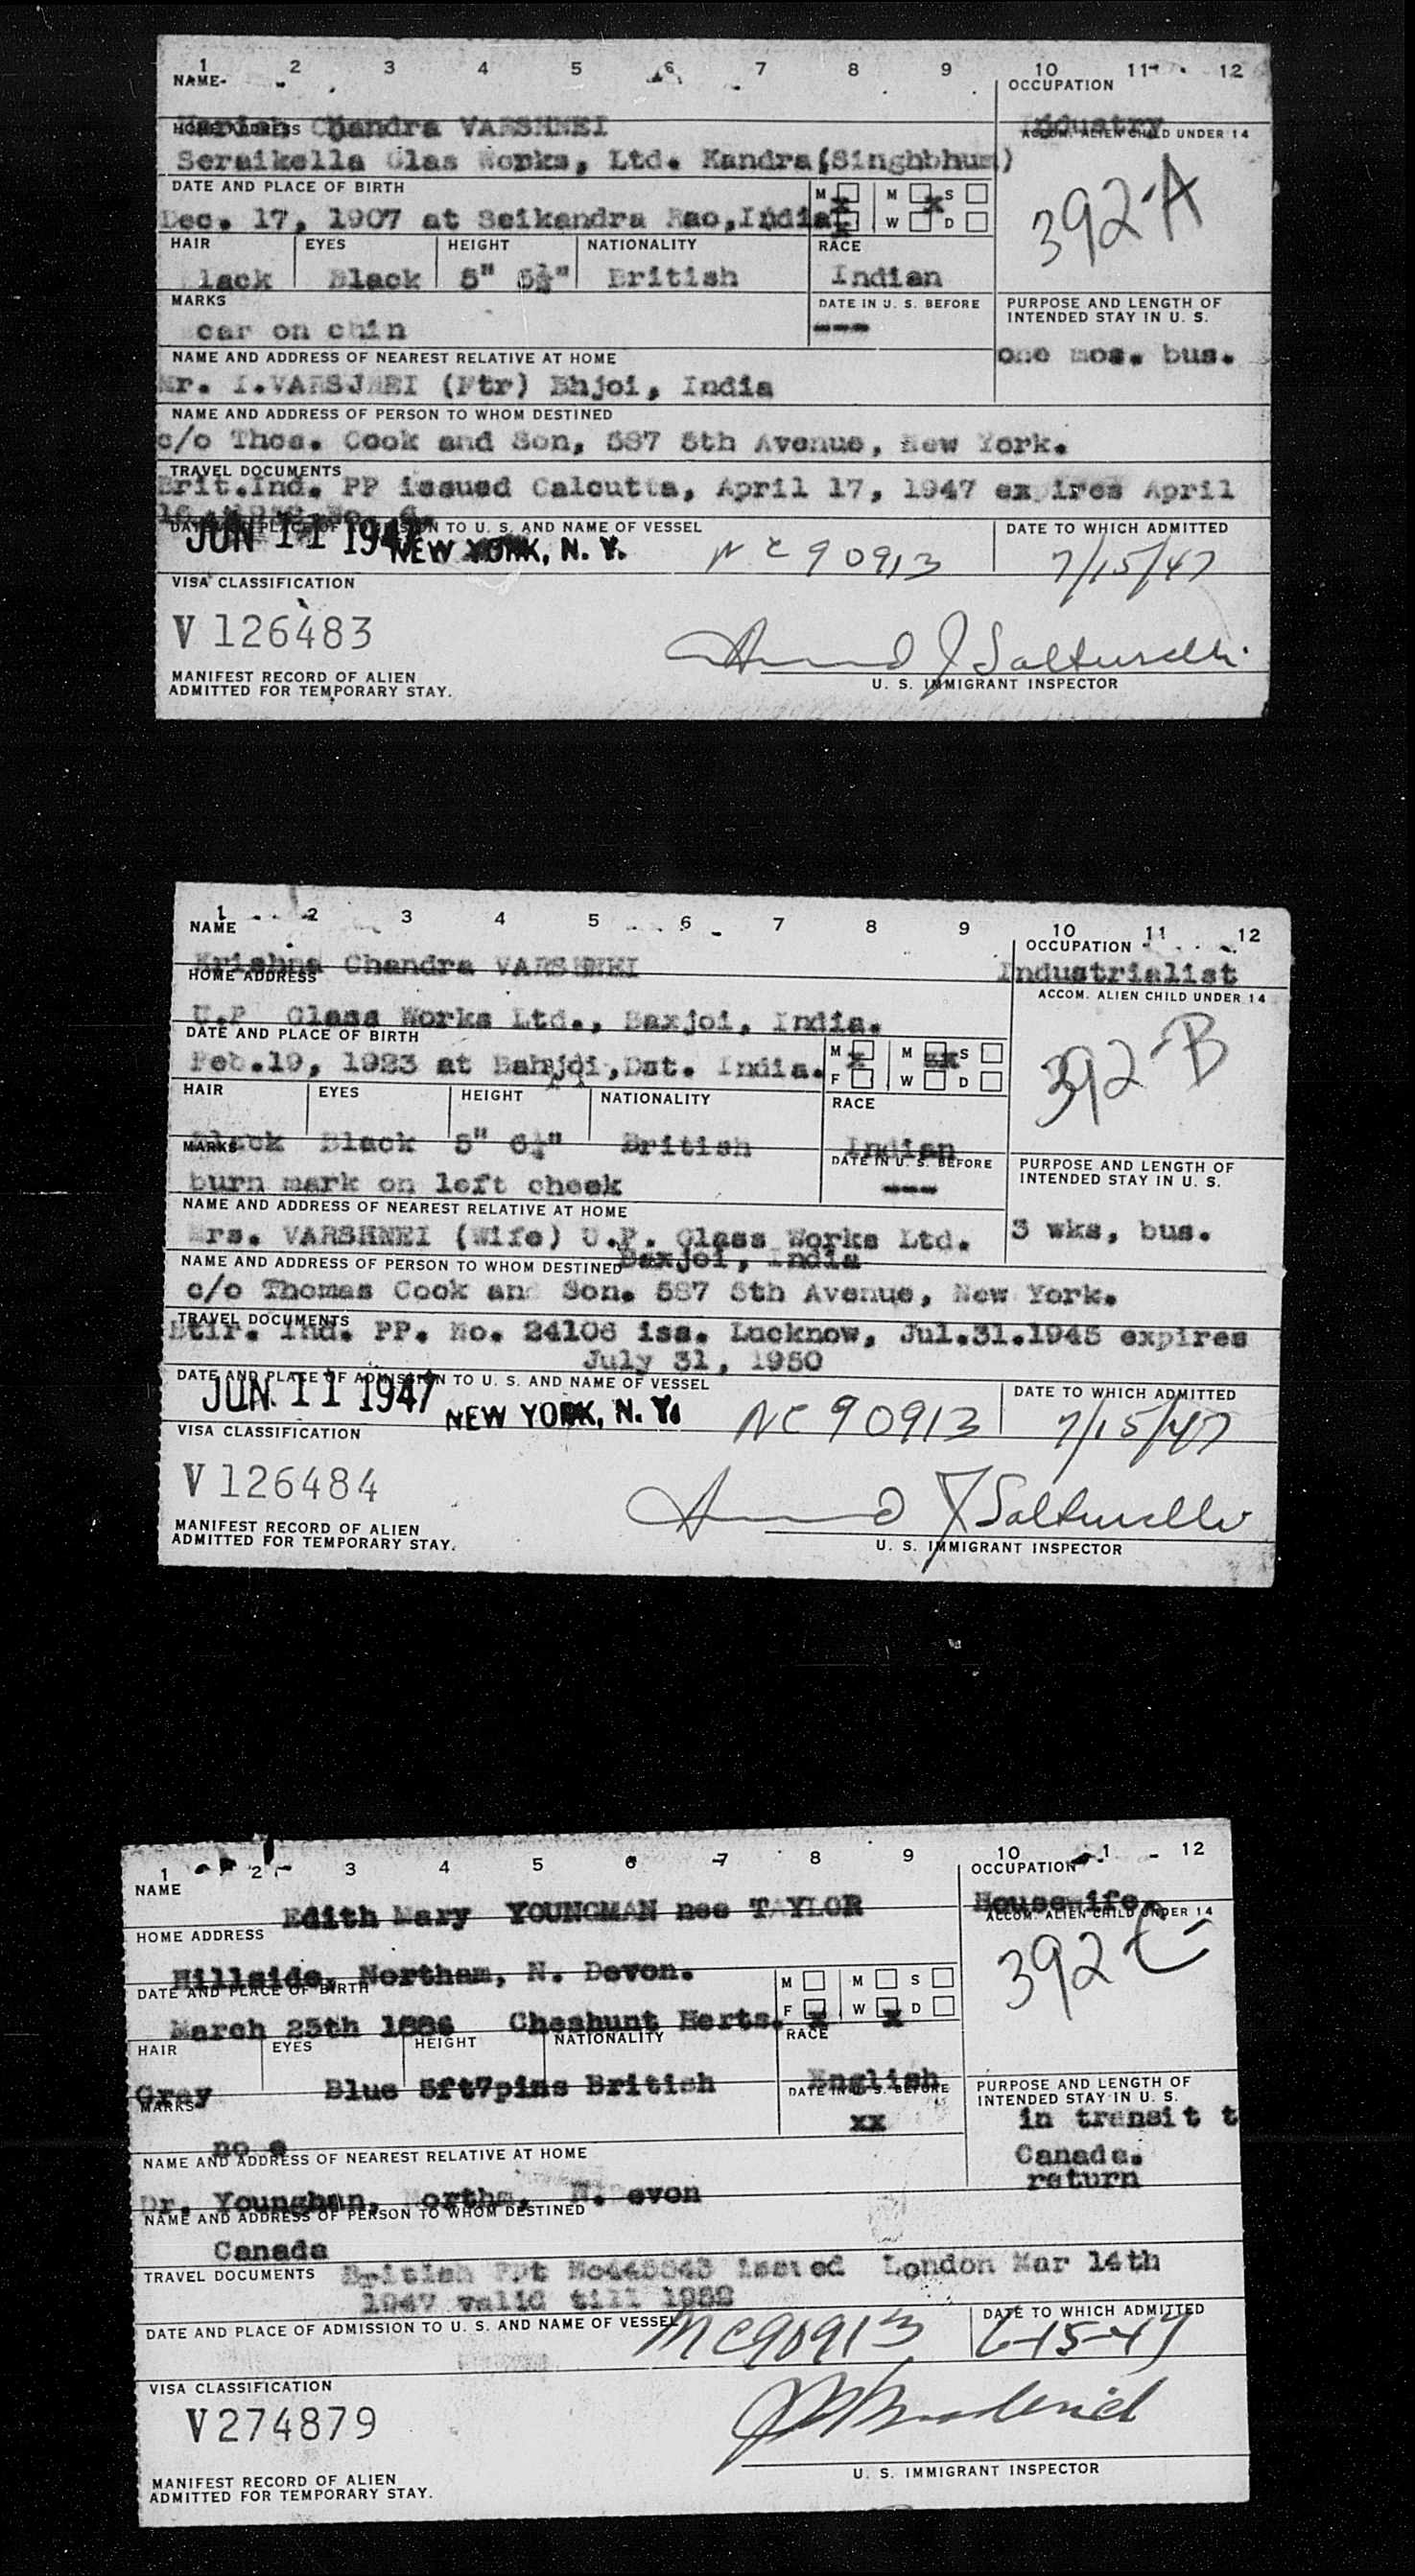 1 2 3 4 5 6 7 8 9 10 11 12
NAME OCCUPATION
Harish Chandra VARSHNEI Industry
HOME ADDRESS ACCOM. ALIEN CHILD UNDER 14
Seraikella Glas Works, Ltd. Kandra(Singhbhum)
392-A
DATE AND PLACE OF BIRTH M M S
Dec. 17, 1907 at Seikandra Rao,India W D
HAIR EYES HEIGHT NATIONALITY RACE
lack Black 5" 5½" British Indian
MARKS DATE IN U. S. BEFORE PURPOSE AND LENGTH OF
INTENDED STAY IN U. S.
car on chin ---
one mos. bus.
NAME AND ADDRESS OF NEAREST RELATIVE AT HOME
Mr. I.VARSJNEI (Ftr) Bhjoi, India
NAME AND ADDRESS OF PERSON TO WHOM DESTINED
c/o Thos. Cook and Son, 587 5th Avenue, New York.
TRAVEL DOCUMENTS
Brit.Ind. PP issued Calcutta, April 17, 1947 expires April
TO U. S. AND NAME OF VESSEL DATE TO WHICH ADMITTED
JUN 11 1947 NEW YORK, N. Y. NC 90913 7/15/47
VISA CLASSIFICATION
V 126483
MANIFEST RECORD OF ALIEN
ADMITTED FOR TEMPORARY STAY.
U. S. IMMIGRANT INSPECTOR
1 2 3 4 5 6 7 8 9 10 11 12
NAME OCCUPATION
Krishna Chandra VARSHNEI Industrialist
HOME ADDRESS ACCOM. ALIEN CHILD UNDER 14
U.P Glass Works Ltd., Baxjoi, India.
392-B
DATE AND PLACE OF BIRTH M M S
Feb.19, 1923 at Bahjoi,Dst. India. F W D
HAIR EYES HEIGHT NATIONALITY RACE
Black Black 5" 6½" British Indian
MARKS DATE IN U. S. BEFORE PURPOSE AND LENGTH OF
INTENDED STAY IN U. S.
burn mark on left cheek ---
NAME AND ADDRESS OF NEAREST RELATIVE AT HOME
Mrs. VARSHNEI (Wife) U.P. Glass Works Ltd. 3 wks, bus.
Baxjoi, India
NAME AND ADDRESS OF PERSON TO WHOM DESTINED
c/o Thomas Cook and Son. 587 5th Avenue, New York.
TRAVEL DOCUMENTS
Btir. Ind. PP. No. 24106 iss. Lucknow, Jul.31.1945 expires
July 31, 1950
DATE AND PLACE OF ADMISSION TO U. S. AND NAME OF VESSEL DATE TO WHICH ADMITTED
JUN 11 1947 NEW YORK, N. Y. NC 90913 7/15/47
VISA CLASSIFICATION
V 126484
MANIFEST RECORD OF ALIEN
ADMITTED FOR TEMPORARY STAY.
U. S. IMMIGRANT INSPECTOR
1 2 3 4 5 6 7 8 9 10 1 12
NAME OCCUPATION
Edith Mary YOUNGMAN nee TAYLOR Housewife.
HOME ADDRESS ACCOM. ALIEN CHILD UNDER 14
Hillside, Northam, N. Devon.
392 C
DATE AND PLACE OF BIRTH M M S
March 25th 1886 Cheshunt Herts. F x W x D
HAIR EYES HEIGHT NATIONALITY RACE
Gray Blue 5ft7pins British English
MARKS DATE IN U. S. BEFORE PURPOSE AND LENGTH OF
INTENDED STAY IN U. S.
xx in transit t
no e Canada.
return
NAME AND ADDRESS OF NEAREST RELATIVE AT HOME
Dr. Younghan, N. evon
NAME AND ADDRESS OF PERSON TO WHOM DESTINED
Canada
TRAVEL DOCUMENTS British Ppt issued London Mar 14th
1947 valid till 1952
DATE AND PLACE OF ADMISSION TO U. S. AND NAME OF VESSEL DATE TO WHICH ADMITTED
NC90913 6-15-47
VISA CLASSIFICATION
V 274879
MANIFEST RECORD OF ALIEN
ADMITTED FOR TEMPORARY STAY.
U. S. IMMIGRANT INSPECTOR